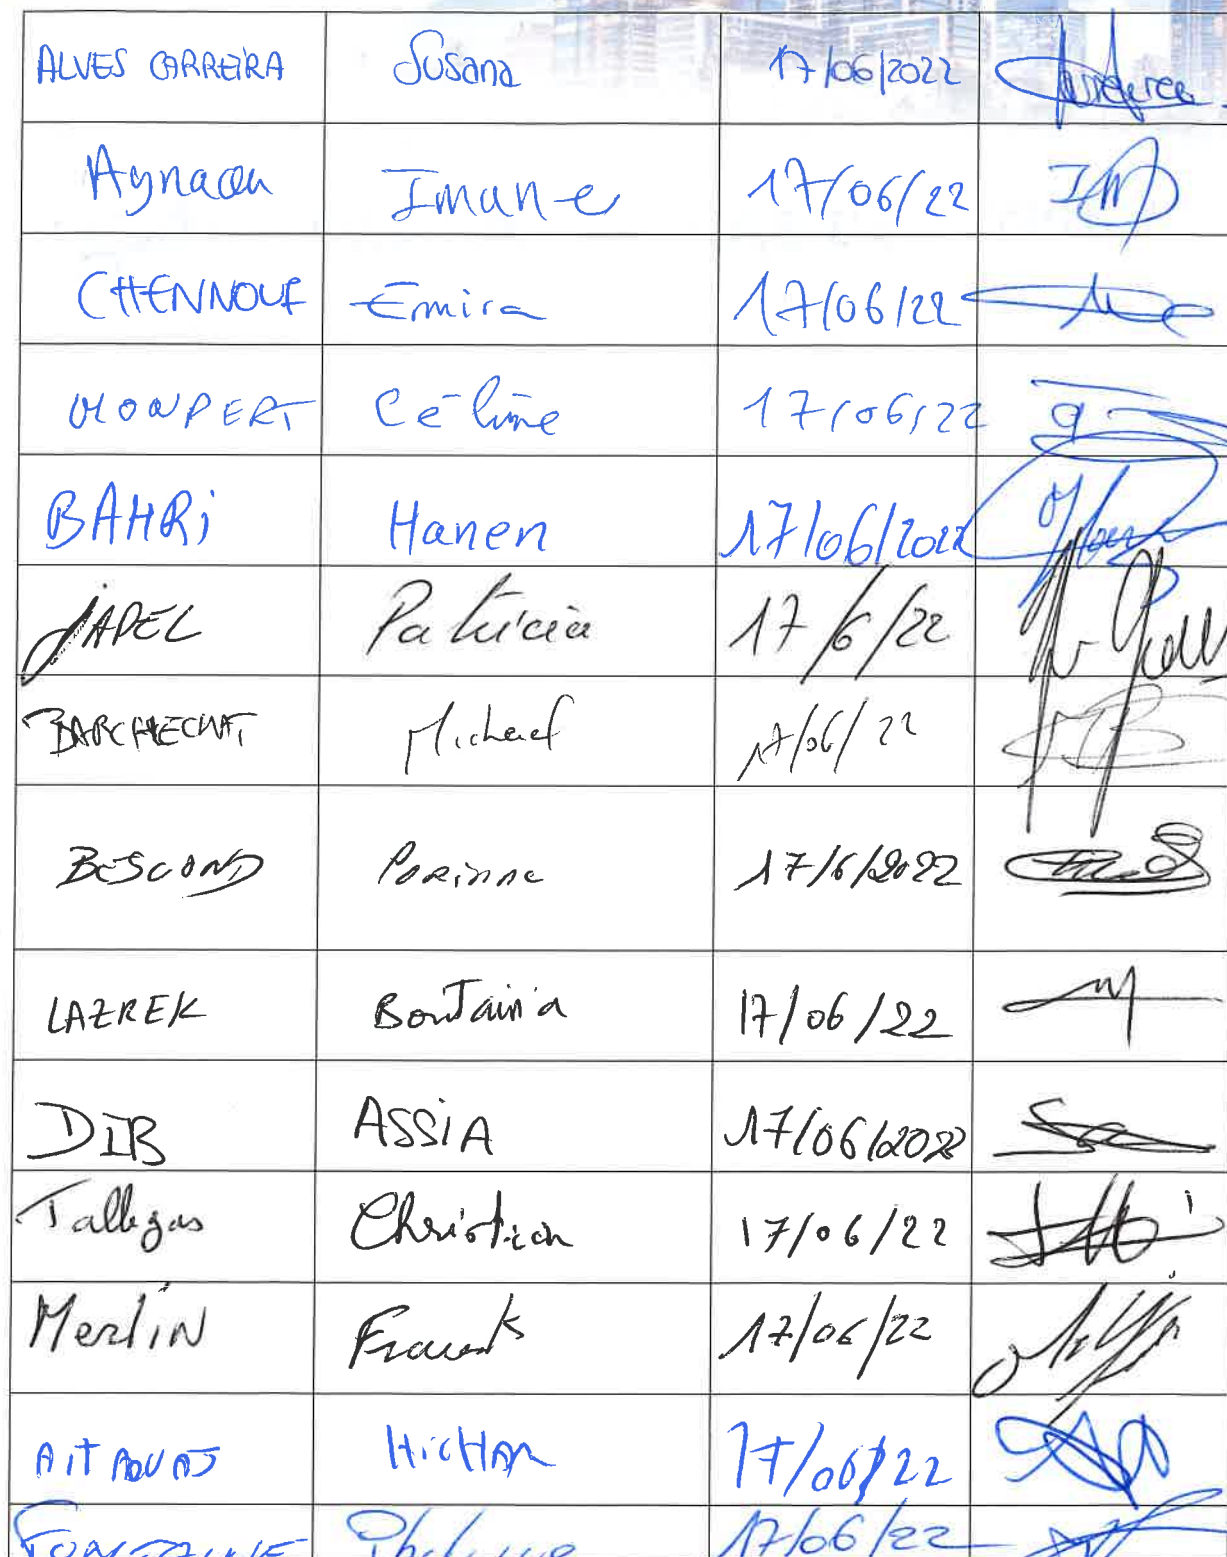 ALVES CARREIRA Susana 17/06/2022
Aynaou Imane 17/06/22
CHENNOUF Emira 17/06/22
MONPERT Céline 17/06/22
BAHRi Hanen 17/06/2022
JAPEL Patricia 17/6/22
BARCHECHAT Michael 17/06/22
BESCOND 17/6/2022
LAZREK 17/06/22
DIB ASSIA 17/06/2022
Tallegas Christian 17/06/22
Merlin Franck 17/06/22
AIT HicHam 17/06/22
17/06/22